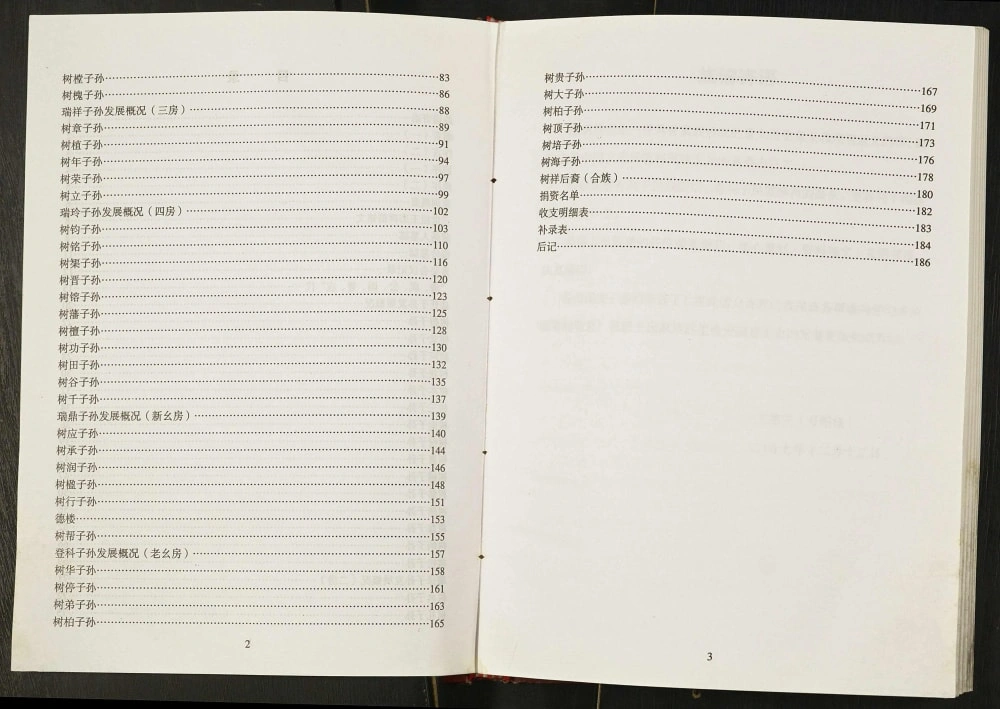 树樘子孙……83
树槐子孙……86
瑞祥子孙发展概况（三房）……88
树章子孙……89
树植子孙……91
树年子孙……94
树荣子孙……97
树立子孙……99
瑞玲子孙发展概况（四房）……102
树钧子孙……103
树铭子孙……110
树榘子孙……116
树晋子孙……120
树镕子孙……123
树藩子孙……125
树檀子孙……128
树功子孙……130
树田子孙……132
树谷子孙……135
树千子孙……137
瑞鼎子孙发展概况（新幺房）……139
树应子孙……140
树承子孙……144
树润子孙……146
树楹子孙……148
树行子孙……151
德楼……153
树帮子孙……155
登科子孙发展概况（老幺房）……157
树华子孙……158
树停子孙……161
树弟子孙……163
树柏子孙……165
2
树贵子孙……167
树大子孙……169
树柏子孙……171
树顶子孙……173
树培子孙……176
树海子孙……178
树祥后裔（合族）……180
捐资名单……182
收支明细表……183
补录表……184
后记……186
3